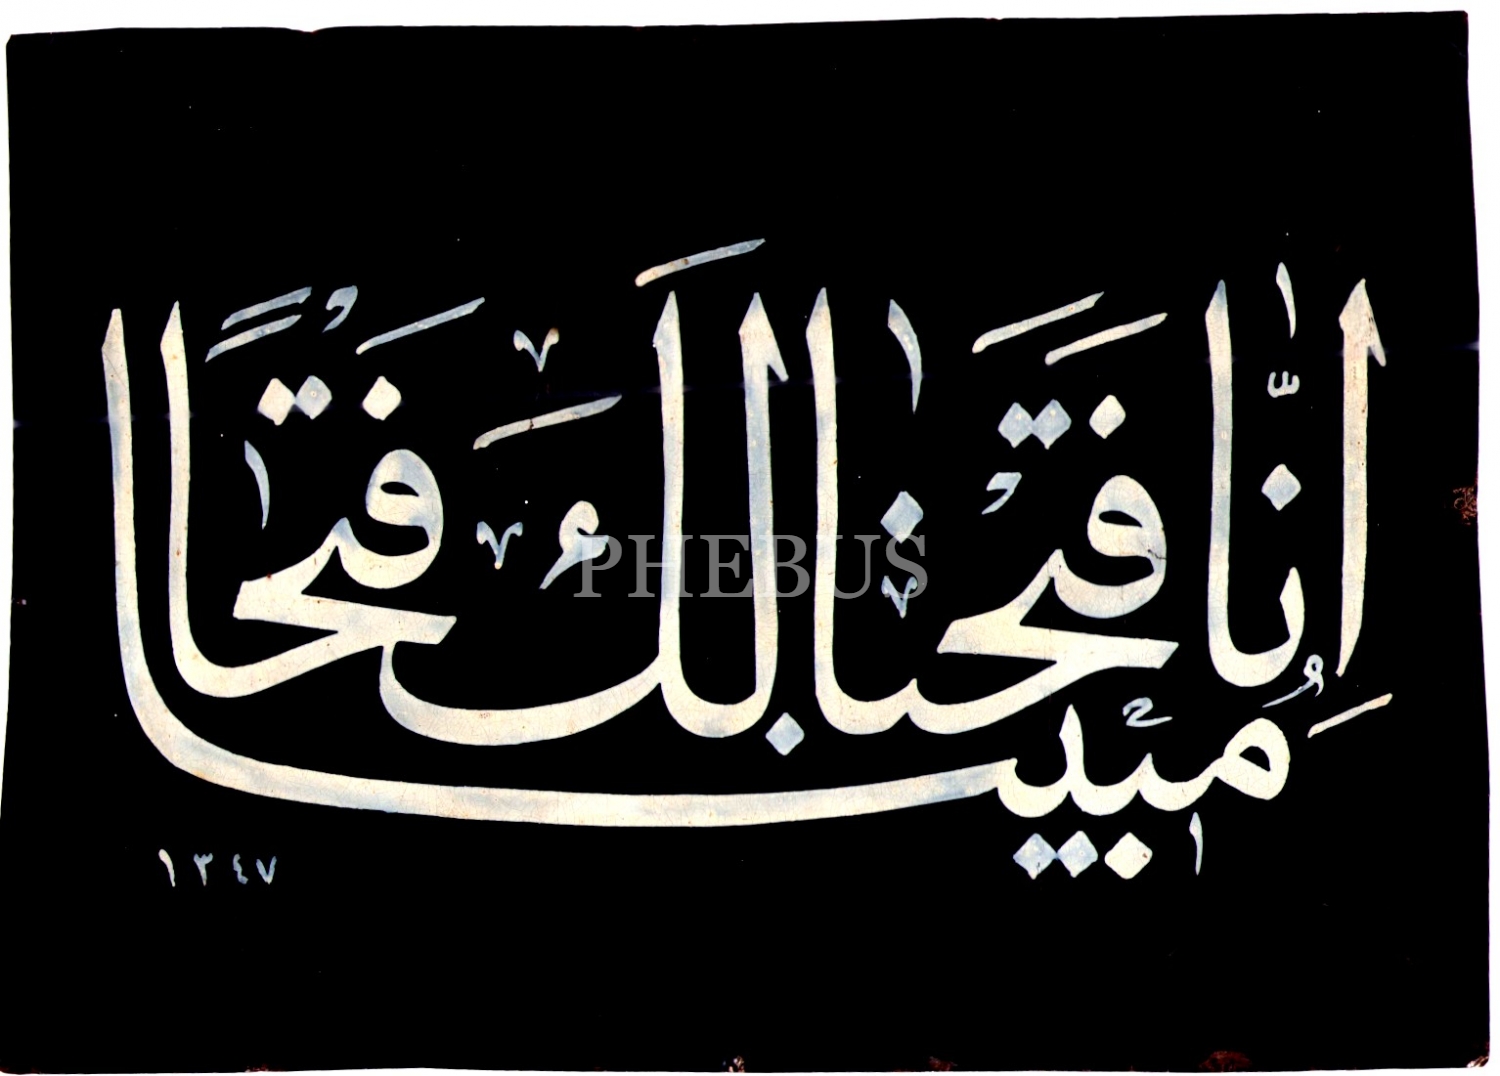 انّا فتحنا لك فتحًا
مُبينا
١٣٤٧
PHEBUS